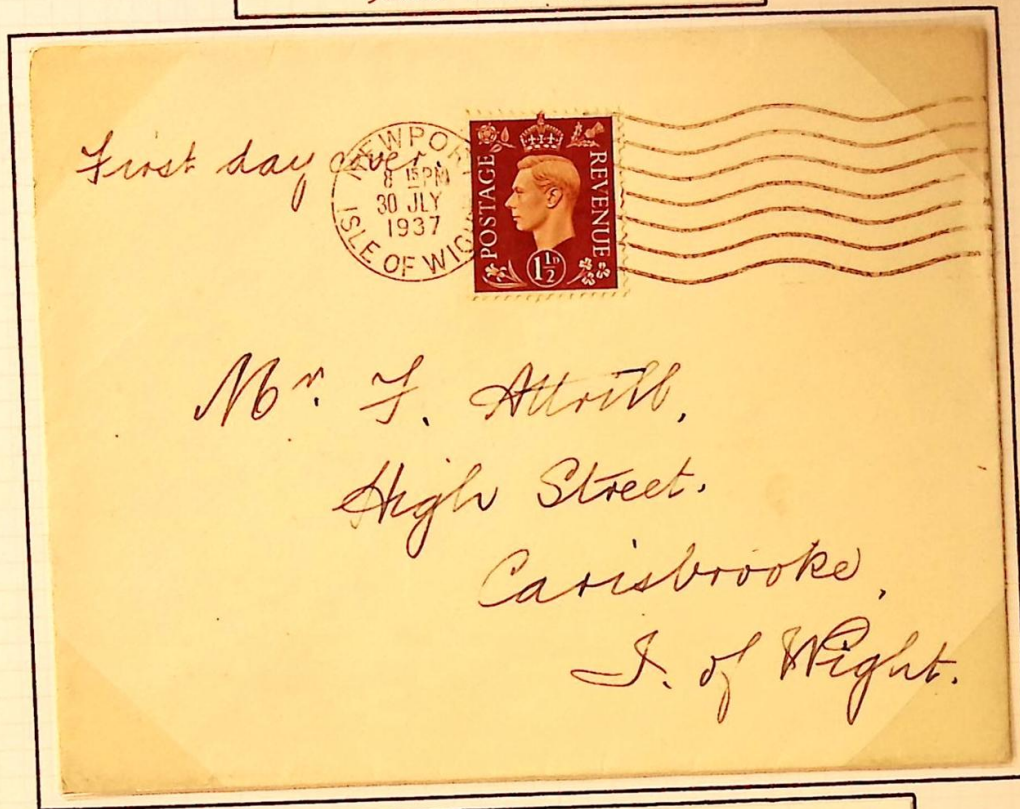 First day Cover.
NEWPORT
8 15 PM
30 JLY
1937
ISLE OF WIGHT
POSTAGE
REVENUE
1½D
Mr. F. Attrill,
High Street.
Carisbrooke,
I. of Wight.